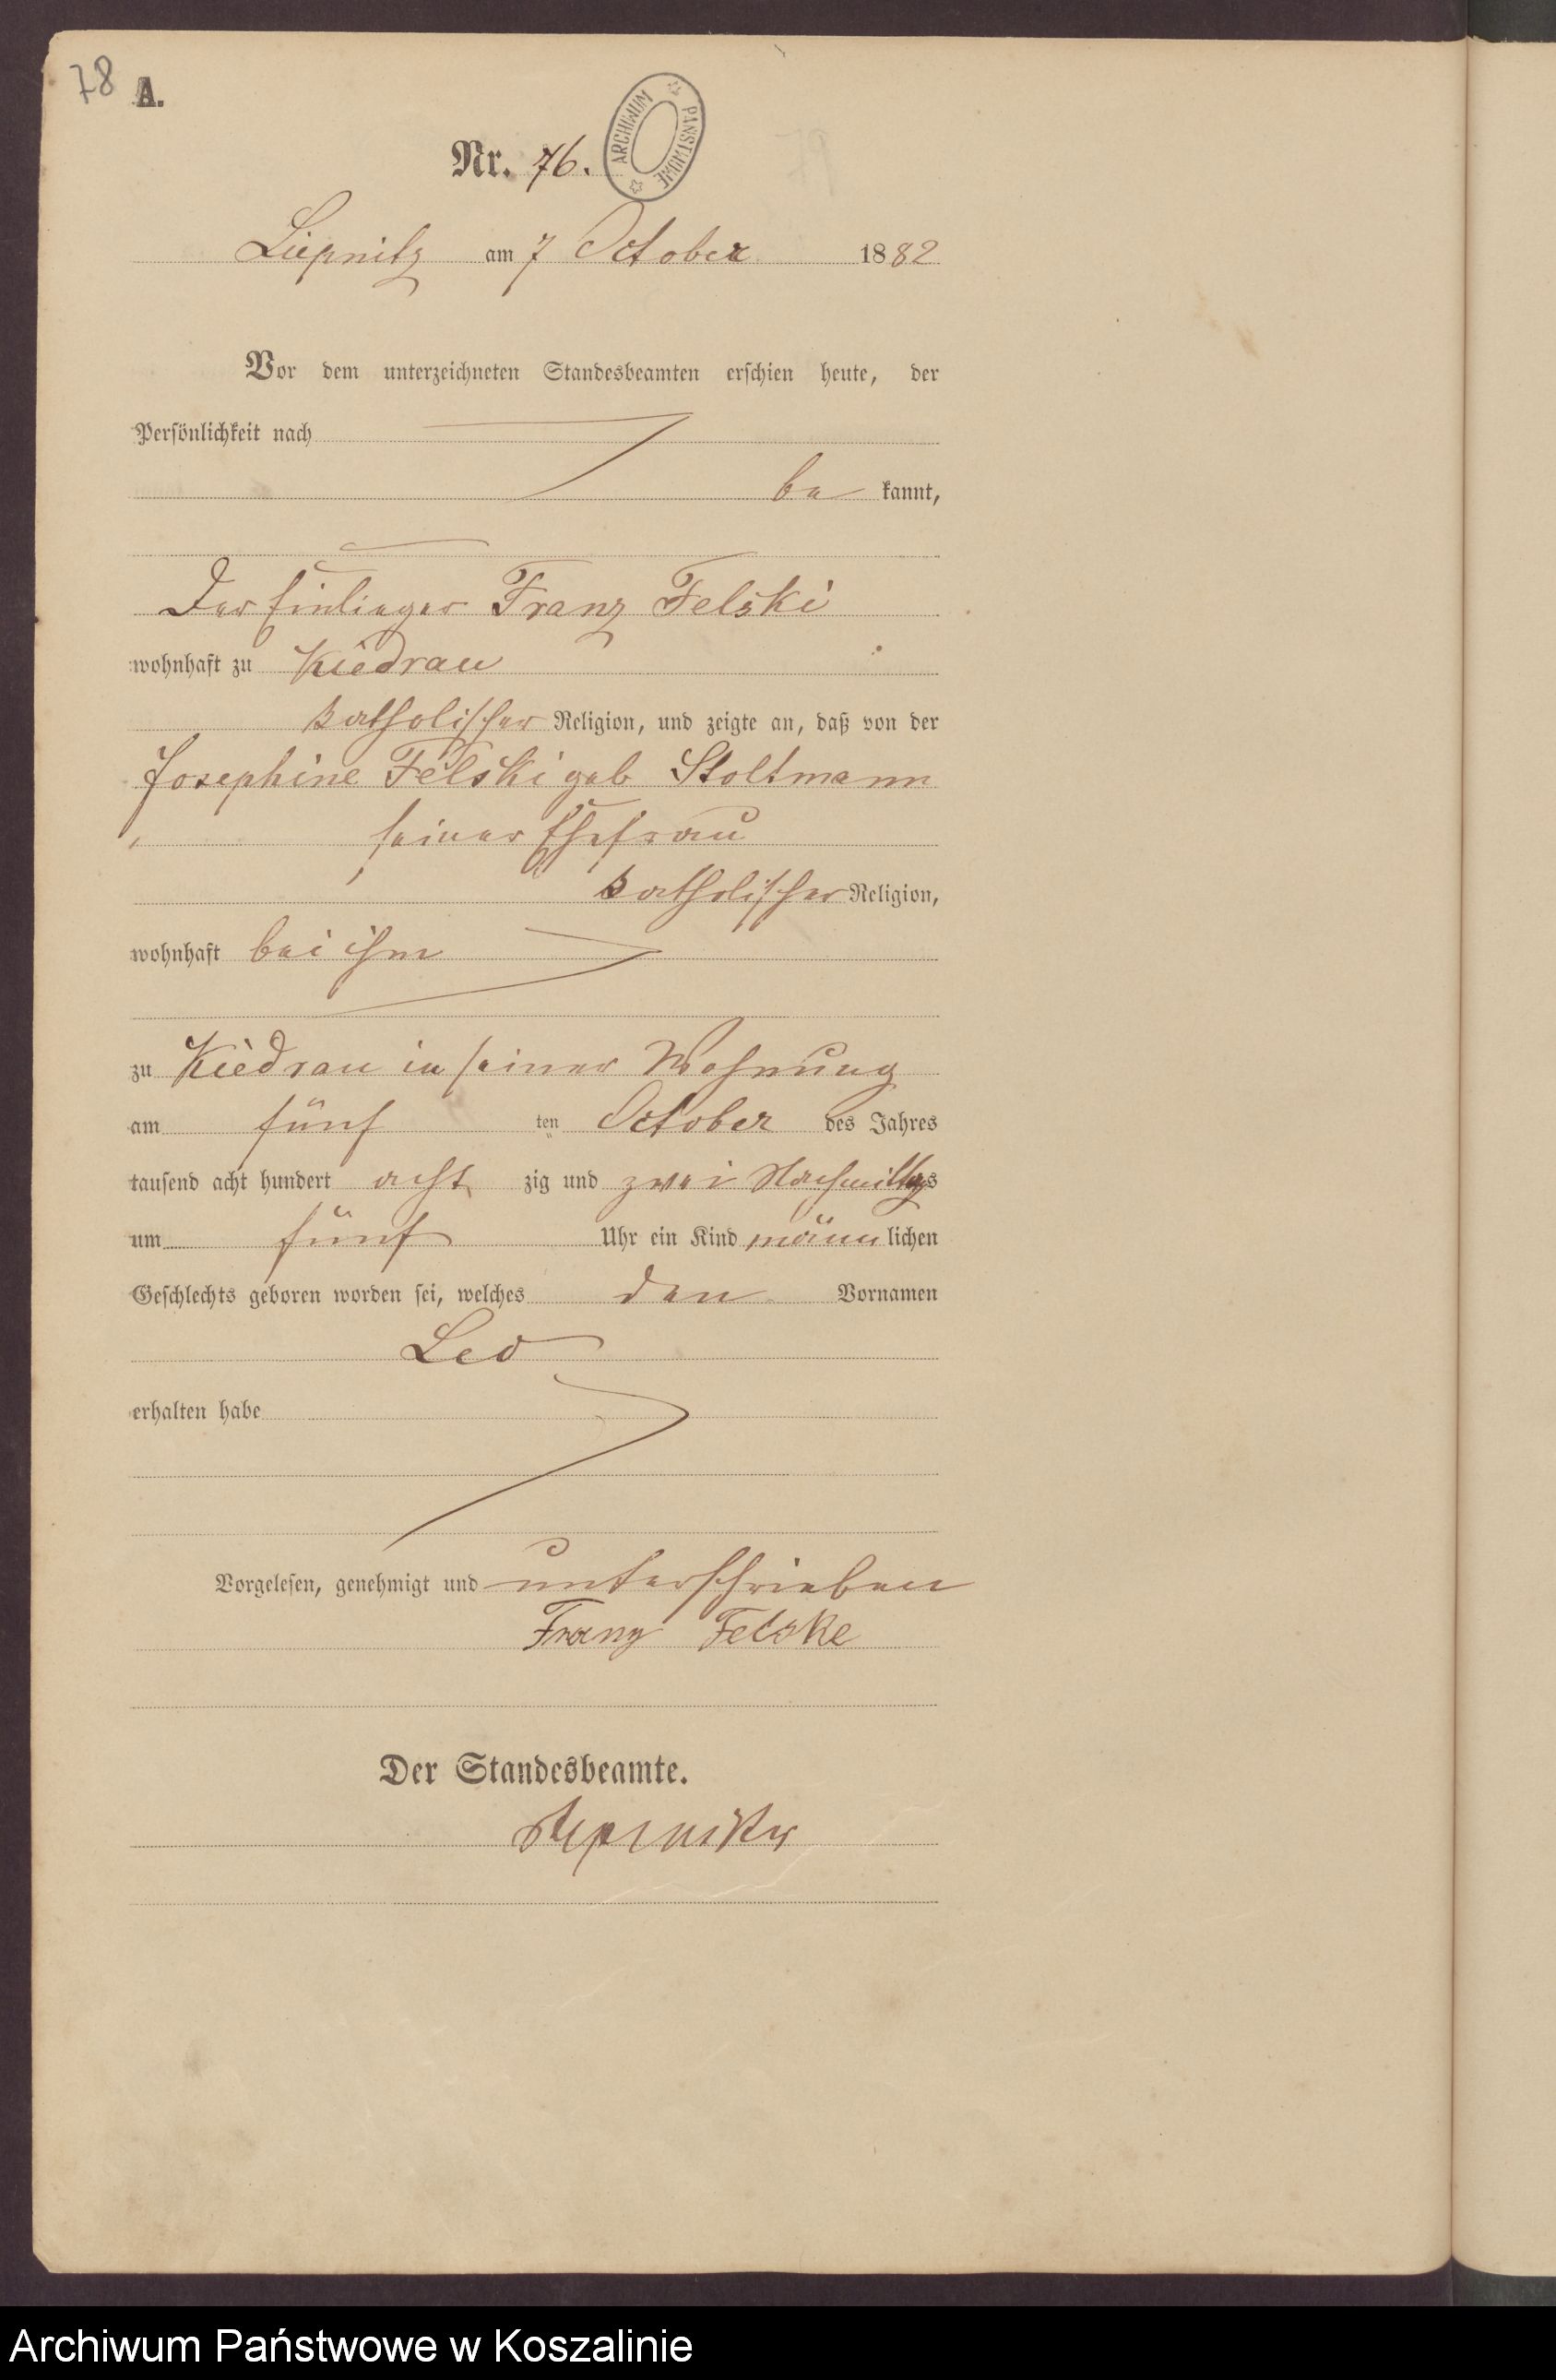 78 A.
Nr. 76.
ARCHIWUM PAŃSTWOWE
Liepnitz am 7 October 1882
Vor dem unterzeichneten Standesbeamten erschien heute, der
Persönlichkeit nach
be kannt,
Der Einlieger Franz Felski
wohnhaft zu Kiedrau
katholischer Religion, und zeigte an, daß von der
Josephine Felski geb Stoltmann
seiner Ehefrau
katholischer Religion,
wohnhaft bei ihm
zu Kiedrau in seiner Wohnung
am fünf ten October des Jahres
tausend acht hundert acht zig und zwei Nachmittags
um fünf Uhr ein Kind männlichen
Geschlechts geboren worden sei, welches den Vornamen
Leo
erhalten habe
Vorgelesen, genehmigt und unterschrieben
Franz Felske
Der Standesbeamte.
Archiwum Państwowe w Koszalinie